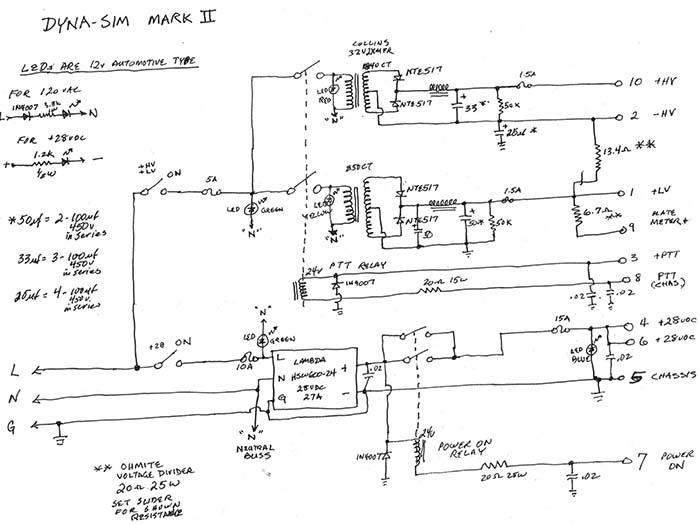 DYNA-SIM MARK II
LEDs ARE 12V AUTOMOTIVE TYPE
FOR 120VAC
1N4007
L
N
FOR +28VDC
+
1.2K
1/2W
-
*50μf = 2-100μf
450V
in series
33μf = 3-100μf
450V
in series
25μf = 4-100μf
450V
in series
COLLINS
LED
RED
"N"
NTE517
NTE517
33*
50K
25μf*
1.5A
10 +HV
2 -HV
13.4Ω **
+HV
+LV
ON
5A
LED
GREEN
"N"
850CT
LED
YELLOW
"N"
NTE517
NTE517
50*
50K
1.5A
1 +LV
6.7Ω **
9
PLATE
METER+
24V
PTT RELAY
1N4007
20Ω 15W
3 +PTT
8 PTT
(CHAS)
.02
.02
+28
ON
"N"
LED
GREEN
10A
L
N
G
LAMBDA
HSW600-24
28VDC
27A
+
-
.02
15A
LED
BLUE
.02
4 +28VDC
6 +28VDC
5 CHASSIS
L
N
G
"N"
NEUTRAL
BUSS
1N4007
24V
POWER ON
RELAY
20Ω 25W
.02
7 POWER
ON
** OHMITE
VOLTAGE DIVIDER
20Ω 25W
SET SLIDER
FOR SHOWN
RESISTANCE